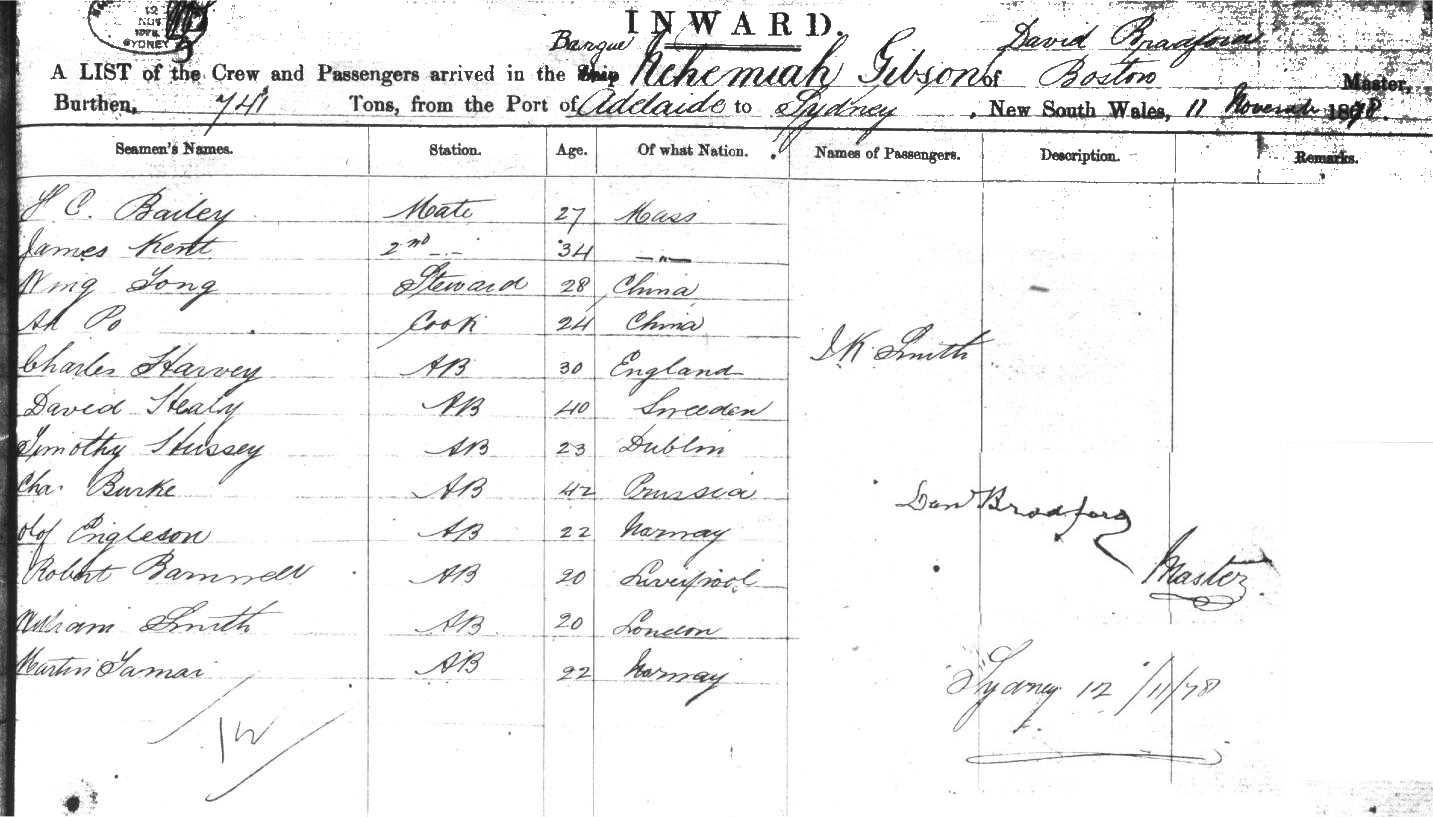 12
NOV
1878
SYDNEY
INWARD.
Barque David Bradford
A LIST of the Crew and Passengers arrived in the Ship Nehemiah Gibson of Boston Master,
Burthen, 741 Tons, from the Port of Adelaide to Sydney, New South Wales, 11 November 1878.
Seamen's Names. Station. Age. Of what Nation. Names of Passengers. Description. Remarks.
H C. Bailey Mate 27 Mass
James Kent 2nd -..- 34 —"—
Wing Tong Steward 28 China
Ah Po Cook 24 China
J K Smith
Charles Harvey AB 30 England
David Healy AB 40 Sweeden
Timothy Hussey AB 23 Dublin
Cha. Burke AB 42 Prussia
Dan Bradford
Olof Engleson AB 22 Norway
Master
Robert AB 20 Liverpool
William Smith AB 20 London
Martin AB 22 Norway
Sydney 12/11/78
12